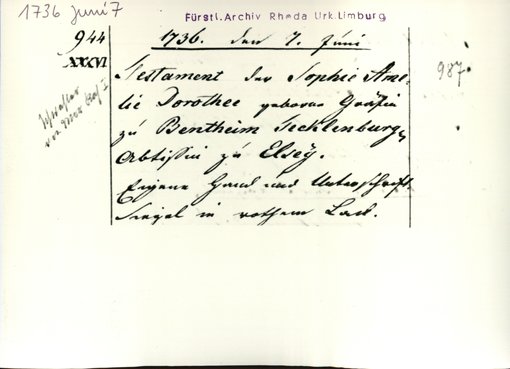 1736 Juni 7
Fürstl. Archiv Rheda Urk. Limburg
944
XXXVI
1736. den 7. Juni
987.
Testament der Sophie Ame-
lie Dorothee geborne Gräfin
zu Bentheim Tecklenburg,
Abtissin zu Elsey.
Eigene Hand und Unterschrift.
Siegel in rothem Lack.